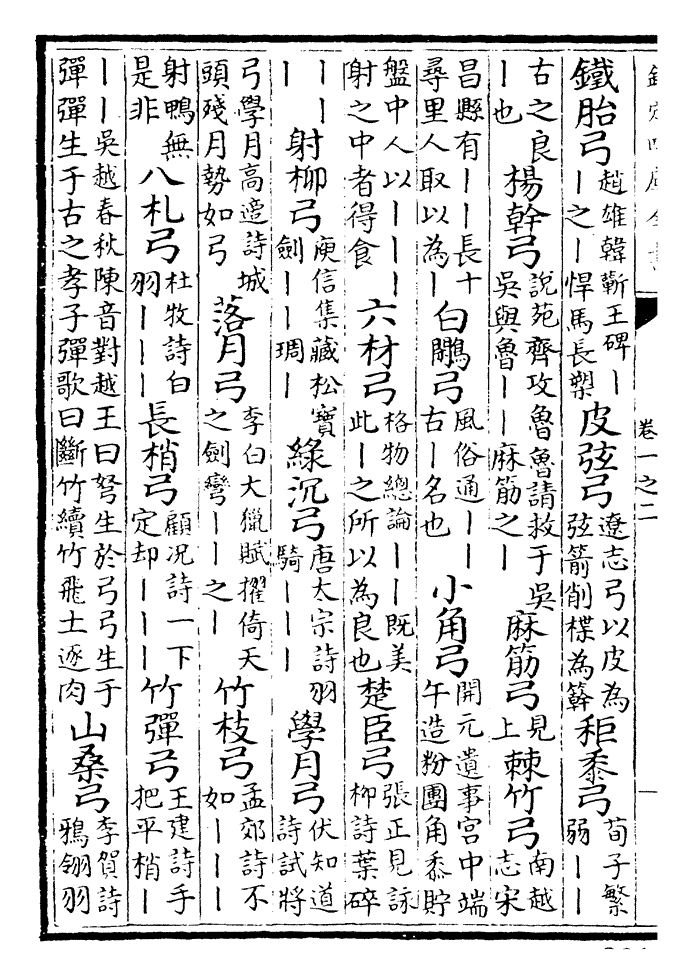 欽定四庫全書
卷一之二
鐵胎弓趙雄韓蘄王碑丨丨之丨悍馬長槊皮弦弓遼志弓以皮為弦箭削楪為簳秬黍弓荀子繁弱丨丨
古之良丨也楊幹弓說苑齊攻魯魯請救于吳吳與魯丨丨麻筋之丨麻筋弓見上棘竹弓南越志宋
昌縣有丨丨長十尋里人取以為丨白鷳弓風俗通丨丨古丨名也小角弓開元遺事宮中端午造粉團角黍貯
盤中人以丨丨丨射之中者得食六材弓格物總論丨丨既美此丨之所以為良也楚臣弓張正見詠柳詩葉碎
丨丨丨丨射柳弓庾信集藏松寶劍丨丨琱丨綠沉弓唐太宗詩羽騎丨丨丨學月弓伏知道詩試將
弓學月高適詩城頭殘月勢如弓落月弓李白大獵賦擢倚天之劍彎丨丨之丨竹枝弓孟郊詩不如丨丨丨
射鴨無是非八札弓杜牧詩白羽丨丨丨長梢弓顧況詩一下定却丨丨丨竹彈弓王建詩手把平梢丨丨
丨丨吳越春秋陳音對越王曰弩生於弓弓生于彈彈生于古之孝子彈歌曰斷竹續竹飛土逐肉山桑弓李賀詩鴉翎羽